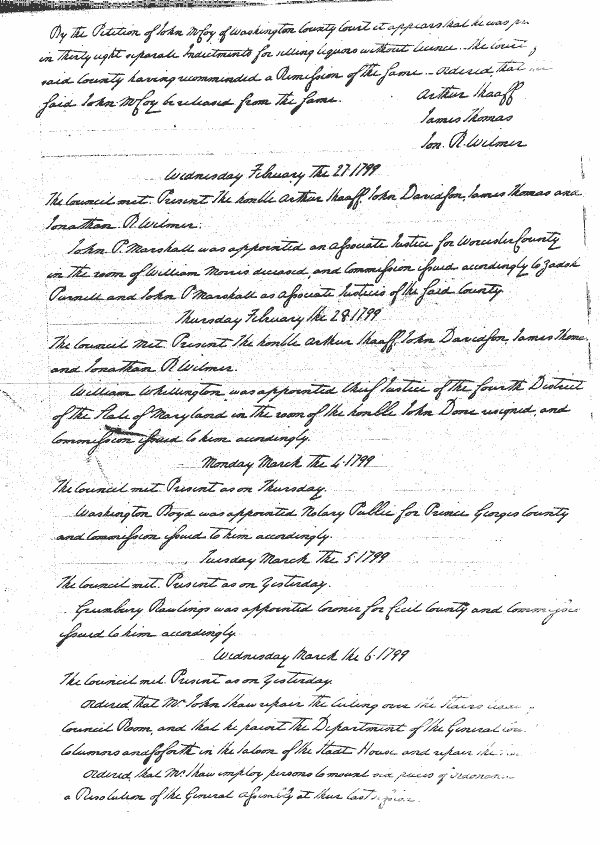 By the Petition of John McCoy of Washington County Court it appears that he was
in thirty eight separate Indictments for selling liquors without licence. The Court
said County having recommended a Remission of the same ordered, that
said John McCoy be released from the same.
Arthur Shaaff
James Thomas
Jon. R. Wilmer
Wednesday February the 27. 1799
The Council met. Present the honble Arthur Shaaff, John Davidson, James Thomas and
Jonathan R. Wilmer.
John P. Marshall was appointed an Associate Justice for Worcester County
in the room of William Morris deceased, and Commission issued accordingly to Zadok
Purnell and John P Marshall as Associate Justices of the said County
Thursday February the 28. 1799
The Council met. Present The honble Arthur Shaaff, John Davidson, James Thomas
and Jonathan R Wilmer.
William Whittington was appointed Chief Justice of the fourth District
of the State of Maryland in the room of the honble John Done resigned, and
Commission issued to him accordingly.
Monday March the 4. 1799
The Council met. Present as on Thursday.
Washington Boyd was appointed Notary Public for Prince Georges County
and Commission issued to him accordingly.
Tuesday March the 5. 1799
The Council met. Present as on Yesterday.
Grunbury Rawlings was appointed Coroner for Cecil County and Commission
issued to him accordingly.
Wednesday March the 6. 1799
The Council met. Present as on Yesterday.
Ordered that Mr John Shaw repair the Ceiling over the Stairs
Council Room, and that he paint the Department of the General
Columns and so forth in the Saloon of the Stadt House and repair the
Ordered, that Mr Shaw employ persons to mount six pieces of ordnance
a Resolution of the General Assembly at their last session.